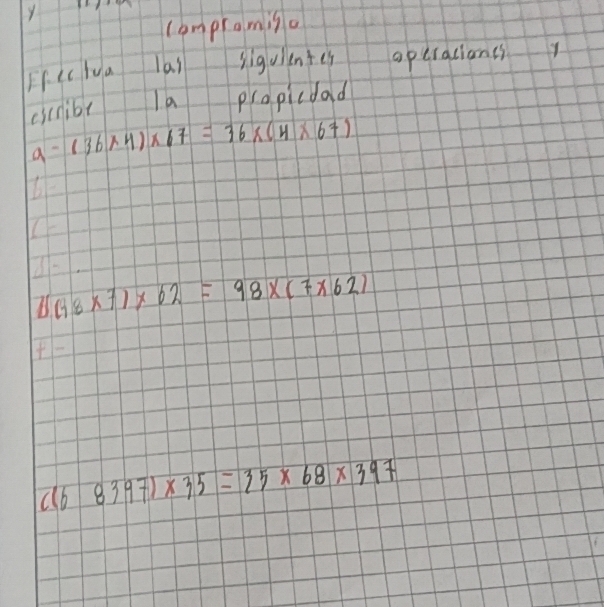 y
Compromiso
Efectua las siguientes operaciones y
escribe la propiedad
a- (36 x 4) x 67 = 36 x (4 x 67)
b(98 x 7) x 62 = 98 x (7 x 62)
c(6 8397) x 35 = 35 x 68 x 397